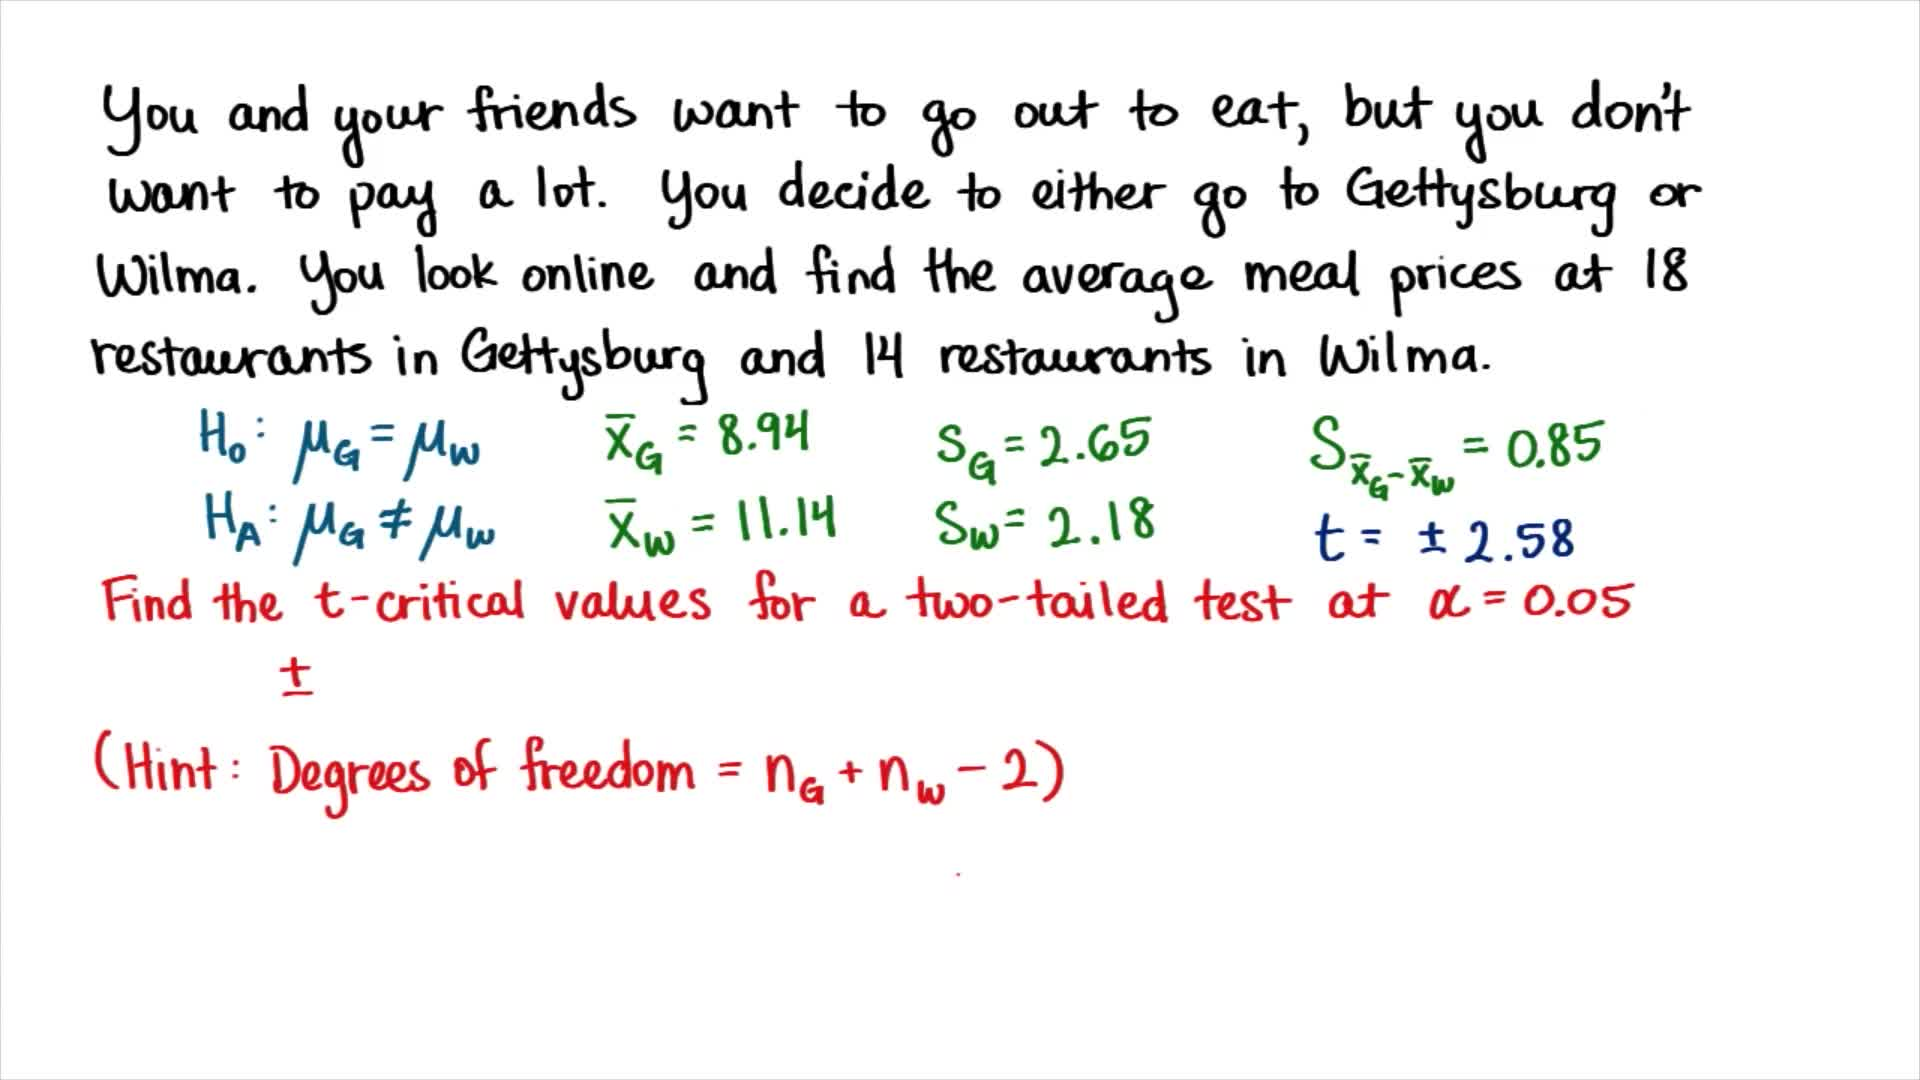 You and your friends want to go out to eat, but you don't
want to pay a lot. You decide to either go to Gettysburg or
Wilma. You look online and find the average meal prices at 18
restaurants in Gettysburg and 14 restaurants in Wilma.
H₀: μ_G = μ_W x̄_G = 8.94 S_G = 2.65 S_x̄_G-x̄_W = 0.85
H_A: μ_G ≠ μ_W x̄_W = 11.14 S_W = 2.18 t = ± 2.58
Find the t-critical values for a two-tailed test at α = 0.05
±
(Hint: Degrees of freedom = n_G + n_W - 2)